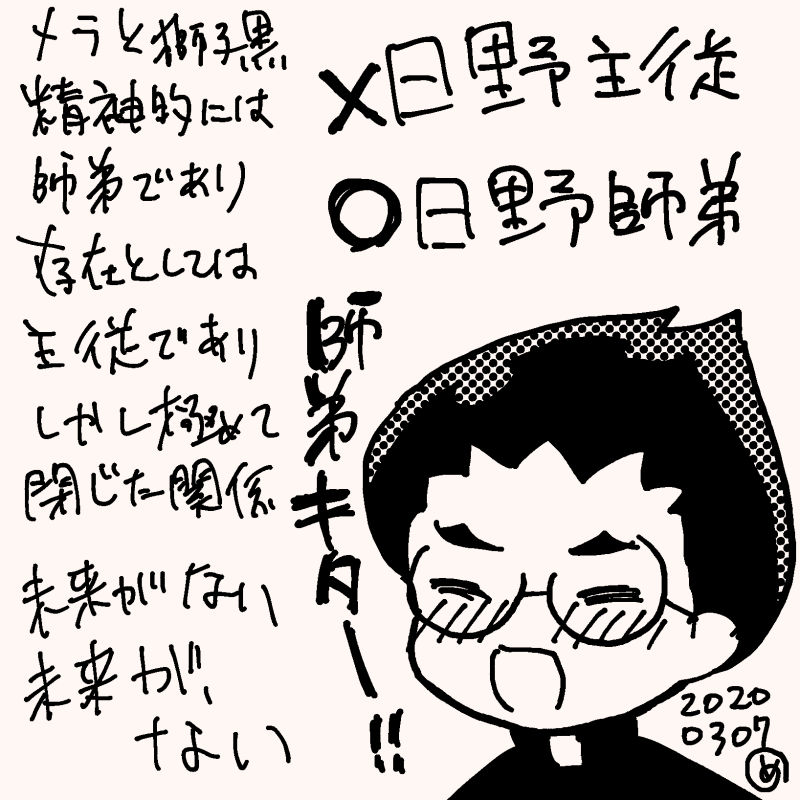 メラと獅子黒
精神的には
師弟であり
存在としては
主従であり
しかし極めて
閉じた関係
未来がない
未来が、
ない
×日野主従
○日野師弟
師弟キター!!
2020
0307
め